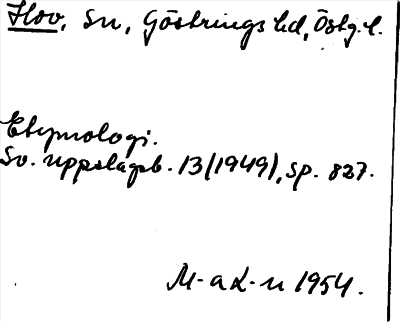 Hov, sn, Göstrings hd, Östg. l.
Etymologi.
Sv. uppslagsb. 13 (1949), sp. 827.
M-a L-n 1954.